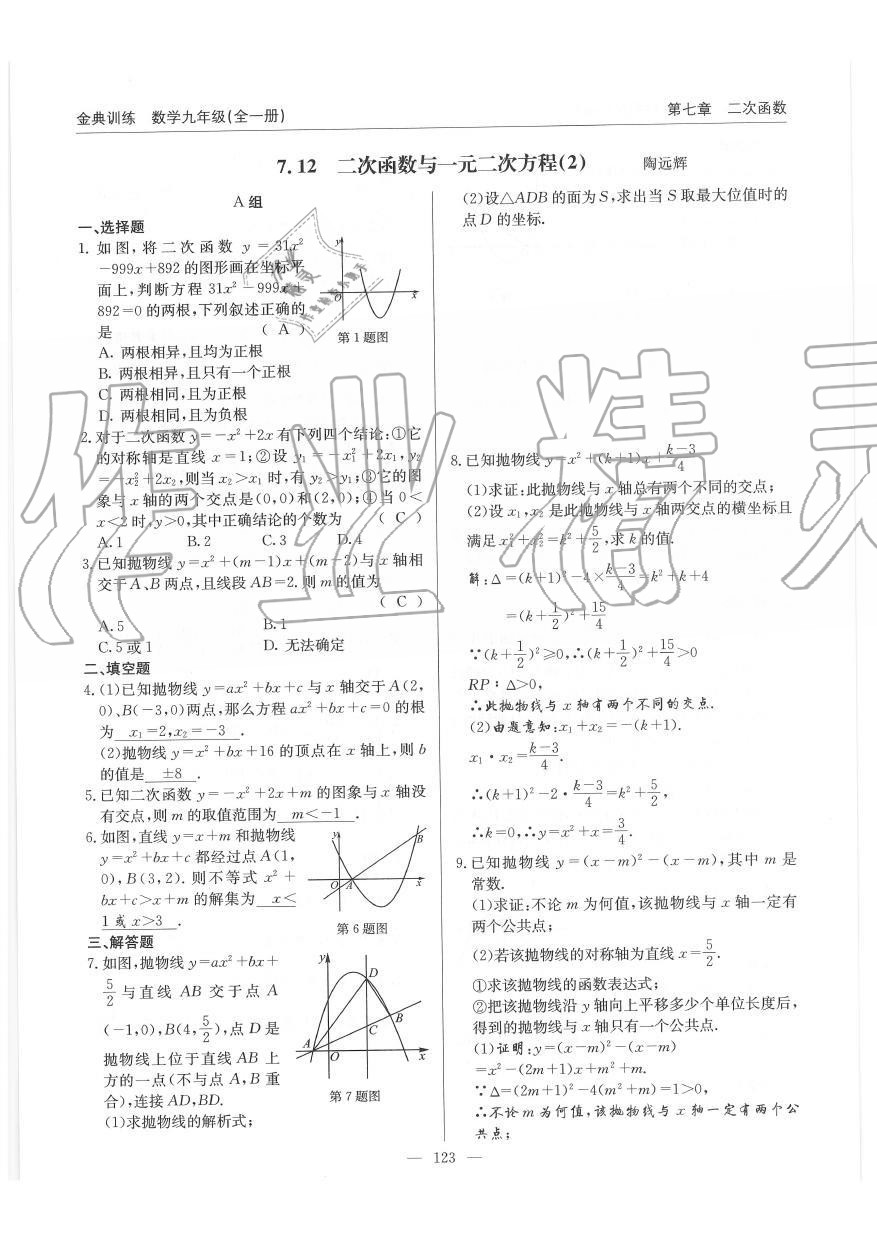 金典训练 数学九年级(全一册)
第七章 二次函数
7.12 二次函数与一元二次方程(2) 陶远辉
A组
一、选择题
1. 如图,将二次函数 y=31x²
-999x+892的图形画在坐标平
面上,判断方程31x²-999x+
892=0的两根,下列叙述正确的
是 ( A )
y
O
x
第1题图
A. 两根相异,且均为正根
B. 两根相异,且只有一个正根
C. 两根相同,且为正根
D. 两根相同,且为负根
2. 对于二次函数y=-x²+2x有下列四个结论:①它
的对称轴是直线 x=1;②设 y₁=-x₁²+2x₁,y₂
=-x₂²+2x₂,则当x₂>x₁时,有y₂>y₁;③它的图
象与x轴的两个交点是(0,0)和(2,0);④当0<
x<2时,y>0,其中正确结论的个数为 ( C )
A. 1 B. 2 C. 3 D. 4
3. 已知抛物线y=x²+(m-1)x+(m-2)与x轴相
交于A、B两点,且线段AB=2.则m的值为
( C )
A. 5 B. 1
C. 5或1 D. 无法确定
二、填空题
4. (1)已知抛物线y=ax²+bx+c与x轴交于A(2,
0)、B(-3,0)两点,那么方程ax²+bx+c=0的根
为 x₁=2,x₂=-3 .
(2)抛物线y=x²+bx+16的顶点在x轴上,则b
的值是 ±8 .
5. 已知二次函数y=-x²+2x+m的图象与x轴没
有交点,则m的取值范围为 m<-1 .
6. 如图,直线y=x+m和抛物线
y=x²+bx+c都经过点A(1,
0),B(3,2). 则不等式 x²+
bx+c>x+m的解集为 x<
1或x>3 .
y
B
O
A
x
第6题图
三、解答题
7. 如图,抛物线y=ax²+bx+
5/2与直线 AB 交于点 A
(-1,0),B(4,5/2),点D是
抛物线上位于直线AB上
方的一点(不与点A,B重
合),连接AD,BD.
(1)求抛物线的解析式;
y
D
B
C
A
O
x
第7题图
(2)设△ADB的面为S,求出当S取最大位值时的
点D的坐标.
8. 已知抛物线y=x²+(k+1)x+(k-3)/4
(1)求证:此抛物线与x轴总有两个不同的交点;
(2)设x₁,x₂是此抛物线与x轴两交点的横坐标且
满足x₁²+x₂²=k²+5/2,求k的值.
解:Δ=(k+1)²-4×(k-3)/4=k²+k+4
=(k+1/2)²+15/4
∵(k+1/2)²≥0,∴(k+1/2)²+15/4>0
RP:Δ>0,
∴此抛物线与x轴有两个不同的交点.
(2)由题意知:x₁+x₂=-(k+1).
x₁·x₂=(k-3)/4.
∴(k+1)²-2·(k-3)/4=k²+5/2,
∴k=0,∴y=x²+x=3/4.
9. 已知抛物线 y=(x-m)²-(x-m),其中 m 是
常数.
(1)求证:不论m为何值,该抛物线与x轴一定有
两个公共点;
(2)若该抛物线的对称轴为直线x=5/2.
①求该抛物线的函数表达式;
②把该抛物线沿y轴向上平移多少个单位长度后,
得到的抛物线与x轴只有一个公共点.
(1)证明:y=(x-m)²-(x-m)
=x²-(2m+1)x+m²+m.
∵Δ=(2m+1)²-4(m²+m)=1>0,
∴不论m为何值,该抛物线与x轴一定有两个公
共点;
— 123 —
作业精灵